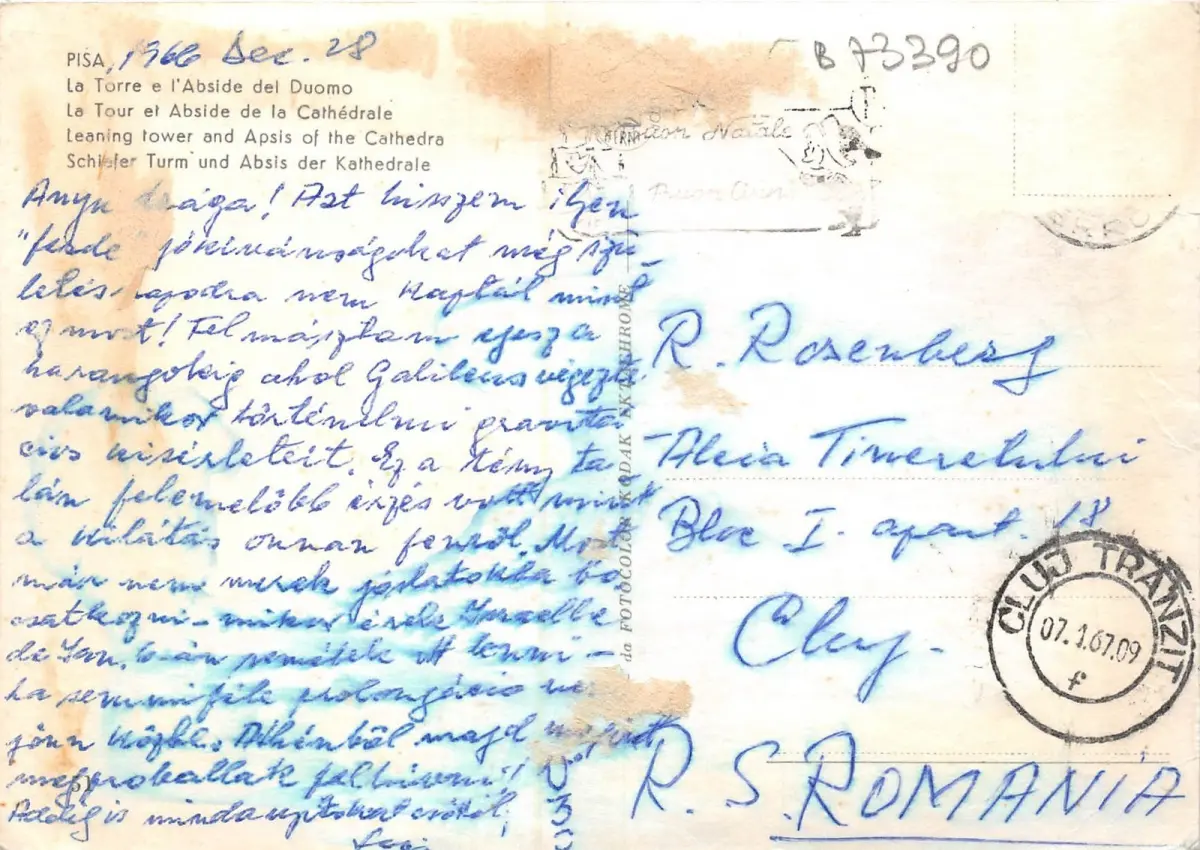 PISA, 1966 Dec. 28
La Torre e l'Abside del Duomo
La Tour et Abside de la Cathédrale
Leaning tower and Apsis of the Cathedra
Schiefer Turm und Absis der Kathedrale
B 73390
Buon Natale
Buon Anno
Anyu drága! Azt hiszem ilyen
"ferde" jókivánságokat még szü-
letésnapodra nem kaptál mint
ez most! Felmásztam egesz a
harangokig ahol Galileus végezte
valamikor történelmi gravitá-
cios kisérleteit. Ez a tény ta-
lán felemelöbb érzés volt mint
a kilátás onnan fenröl. Most
már nem merek jóslatokba bo
csatkozni - mikor érek Izraelbe
de Jan. 6-án remélek ott lenni -
ha semmiféle prolongácio ne
jönn közbe. Athénböl majd
megproballak felhivni!
Addig is mindannyitokat csókol,
da FOTOCOLOR KODAK EKTACHROME
R. Rosenberg
Aleia Tineretului
Bloc I. apart. 18
Cluj.
R. S. ROMANIA
CLUJ TRANZIT
07.1.67.09
f